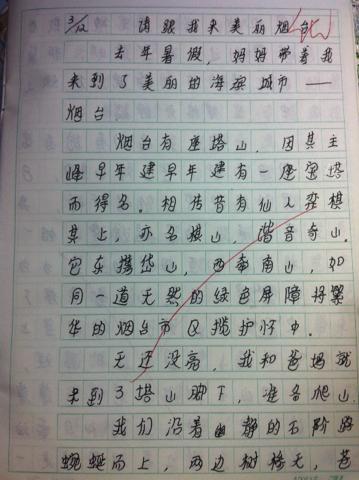 3/12 请跟我来美丽烟台
去年暑假，妈妈带着我
来到了美丽的海滨城市——
烟台
烟台有座塔山，因其主
峰早年建早年建有一座宝塔
而得名。相传昔有仙人弈棋
其上，亦名棋山，谐音奇山。
它东携岱山，西牵南山，如
同一道天然的绿色屏障将繁
华的烟台市区揽护怀中。
天还没亮，我和爸妈就
来到了塔山脚下，准备爬山。
我们沿着幽静的石阶路
蜿蜒而上，两边树梯天，苍